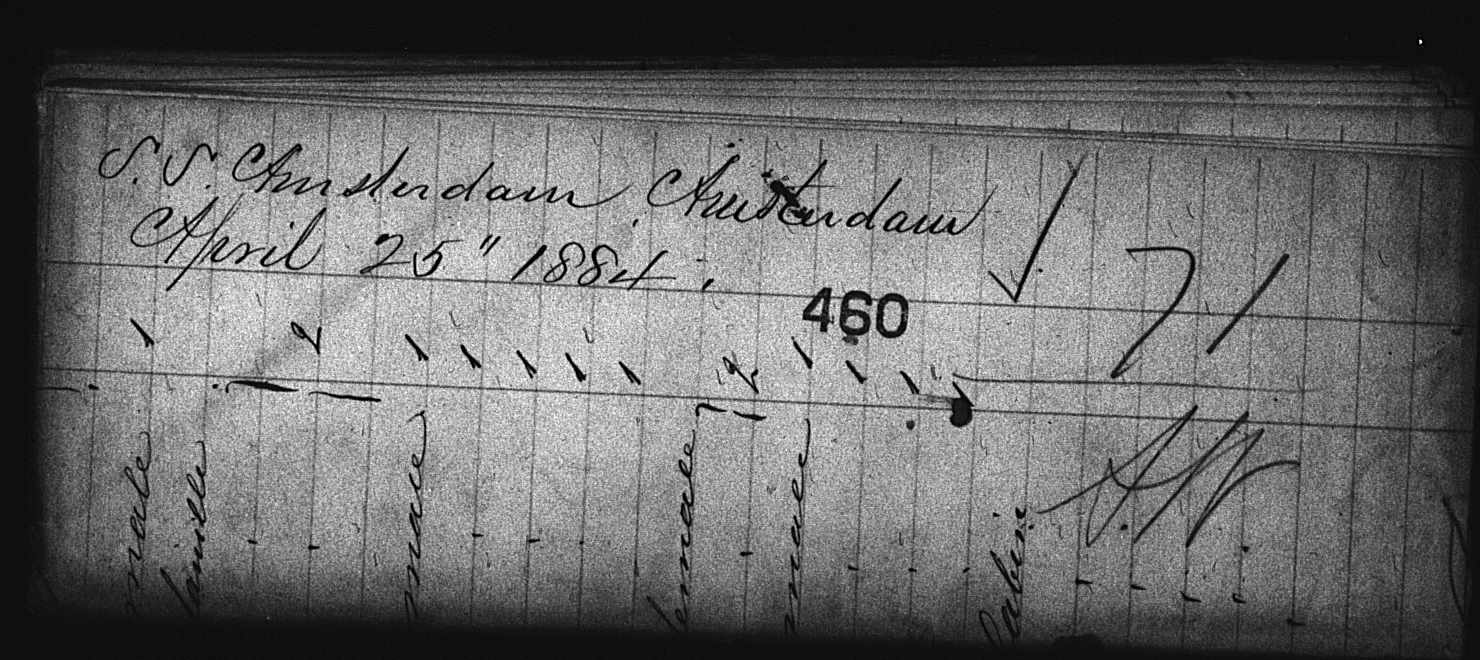 S. S. Amsterdam, Amsterdam
April 25" 1884.
460
71
1 2 1 1 1 1 1 2 1 1 1 1
male
famille
male
female
male
Cabin